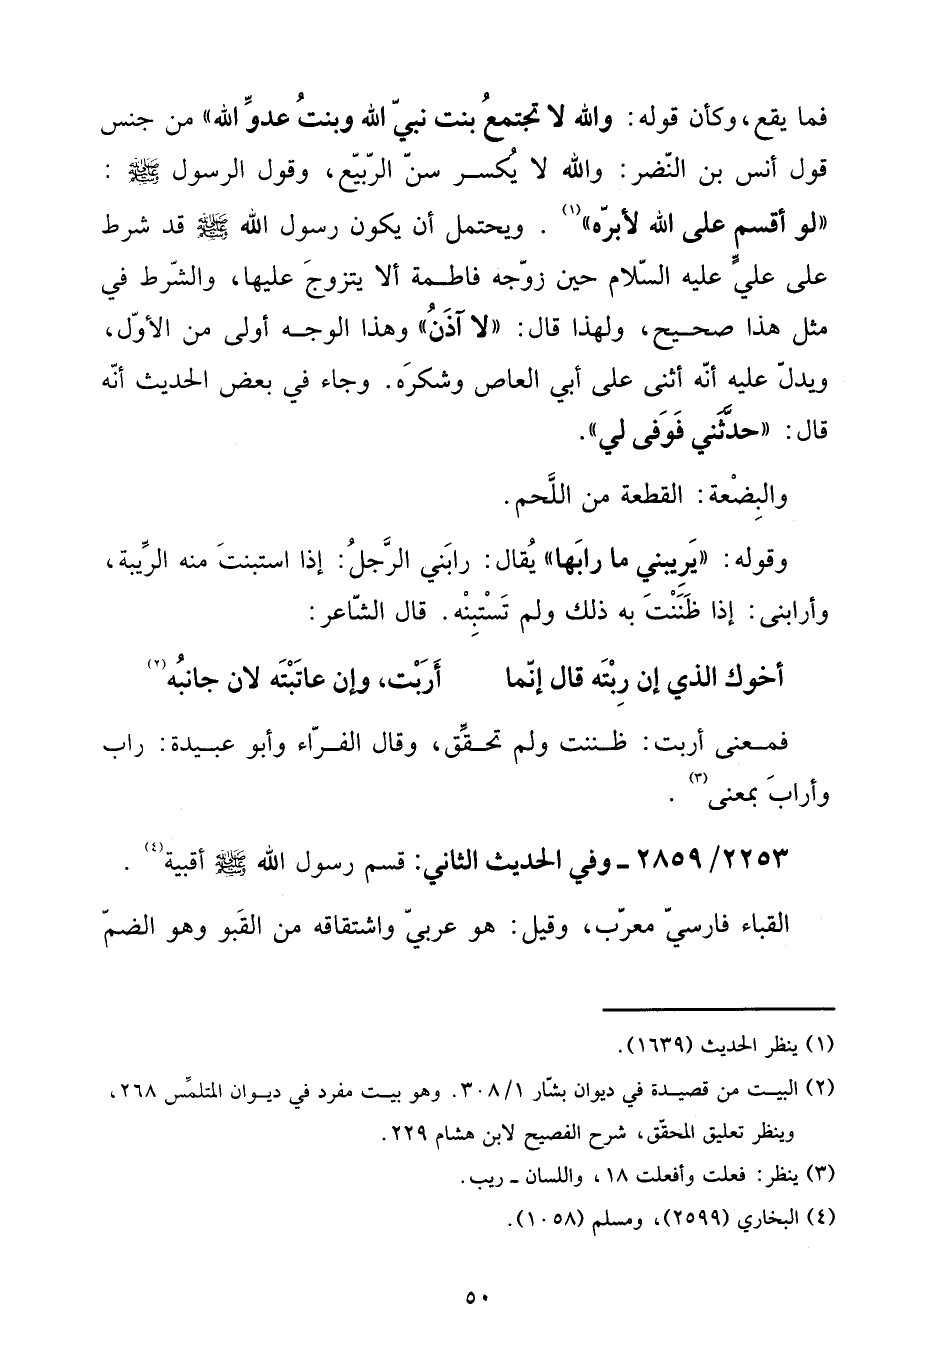 فما يقع، وكأن قوله: والله لا تجتمعُ بنت نبيّ الله وبنتُ عدوِّ الله» من جنس
قول أنس بن النّضر: والله لا يُكسر سنّ الرّبيّع، وقول الرسول ﷺ :
«لو أقسم على الله لأبرّه»(١) . ويحتمل أن يكون رسول الله ﷺ قد شرط
على عليٍّ عليه السّلام حين زوّجه فاطمة ألا يتزوجَ عليها، والشّرط في
مثل هذا صحيح، ولهذا قال: «لا آذَنُ» وهذا الوجه أولى من الأوّل،
ويدلّ عليه أنّه أثنى على أبي العاص وشكرَه. وجاء في بعض الحديث أنّه
قال: «حدَّثَني فَوَفى لي».
والبِضْعة: القطعة من اللَّحم.
وقوله: «يَرِيبني ما رابَها» يُقال: رابَني الرَّجلُ: إذا استبنتَ منه الرِّيبة،
وأرابنى: إذا ظَنَنْتَ به ذلك ولم تَسْتَبِنْه. قال الشّاعر:
أخوك الذي إن رِبْتَه قال إنّما أَرَبْت، وإن عاتَبْتَه لان جانبُه(٢)
فمعنى أربت: ظننت ولم تحقِّق، وقال الفرّاء وأبو عبيدة: راب
وأرابَ بمعنى(٣) .
٢٢٥٣/ ٢٨٥٩ ـ وفي الحديث الثاني: قسم رسول الله ﷺ أقبية(٤) .
القباء فارسيّ معرّب، وقيل: هو عربيّ واشتقاقه من القَبو وهو الضمّ
(١) ينظر الحديث (١٦٣٩).
(٢) البيت من قصيدة في ديوان بشّار ٣٠٨/١. وهو بيت مفرد في ديوان المتلمِّس ٢٦٨،
وينظر تعليق المحقّق، شرح الفصيح لابن هشام ٢٢٩.
(٣) ينظر: فعلت وأفعلت ١٨، واللسان ـ ريب.
(٤) البخاري (٢٥٩٩)، ومسلم (١٠٥٨).
٥٠